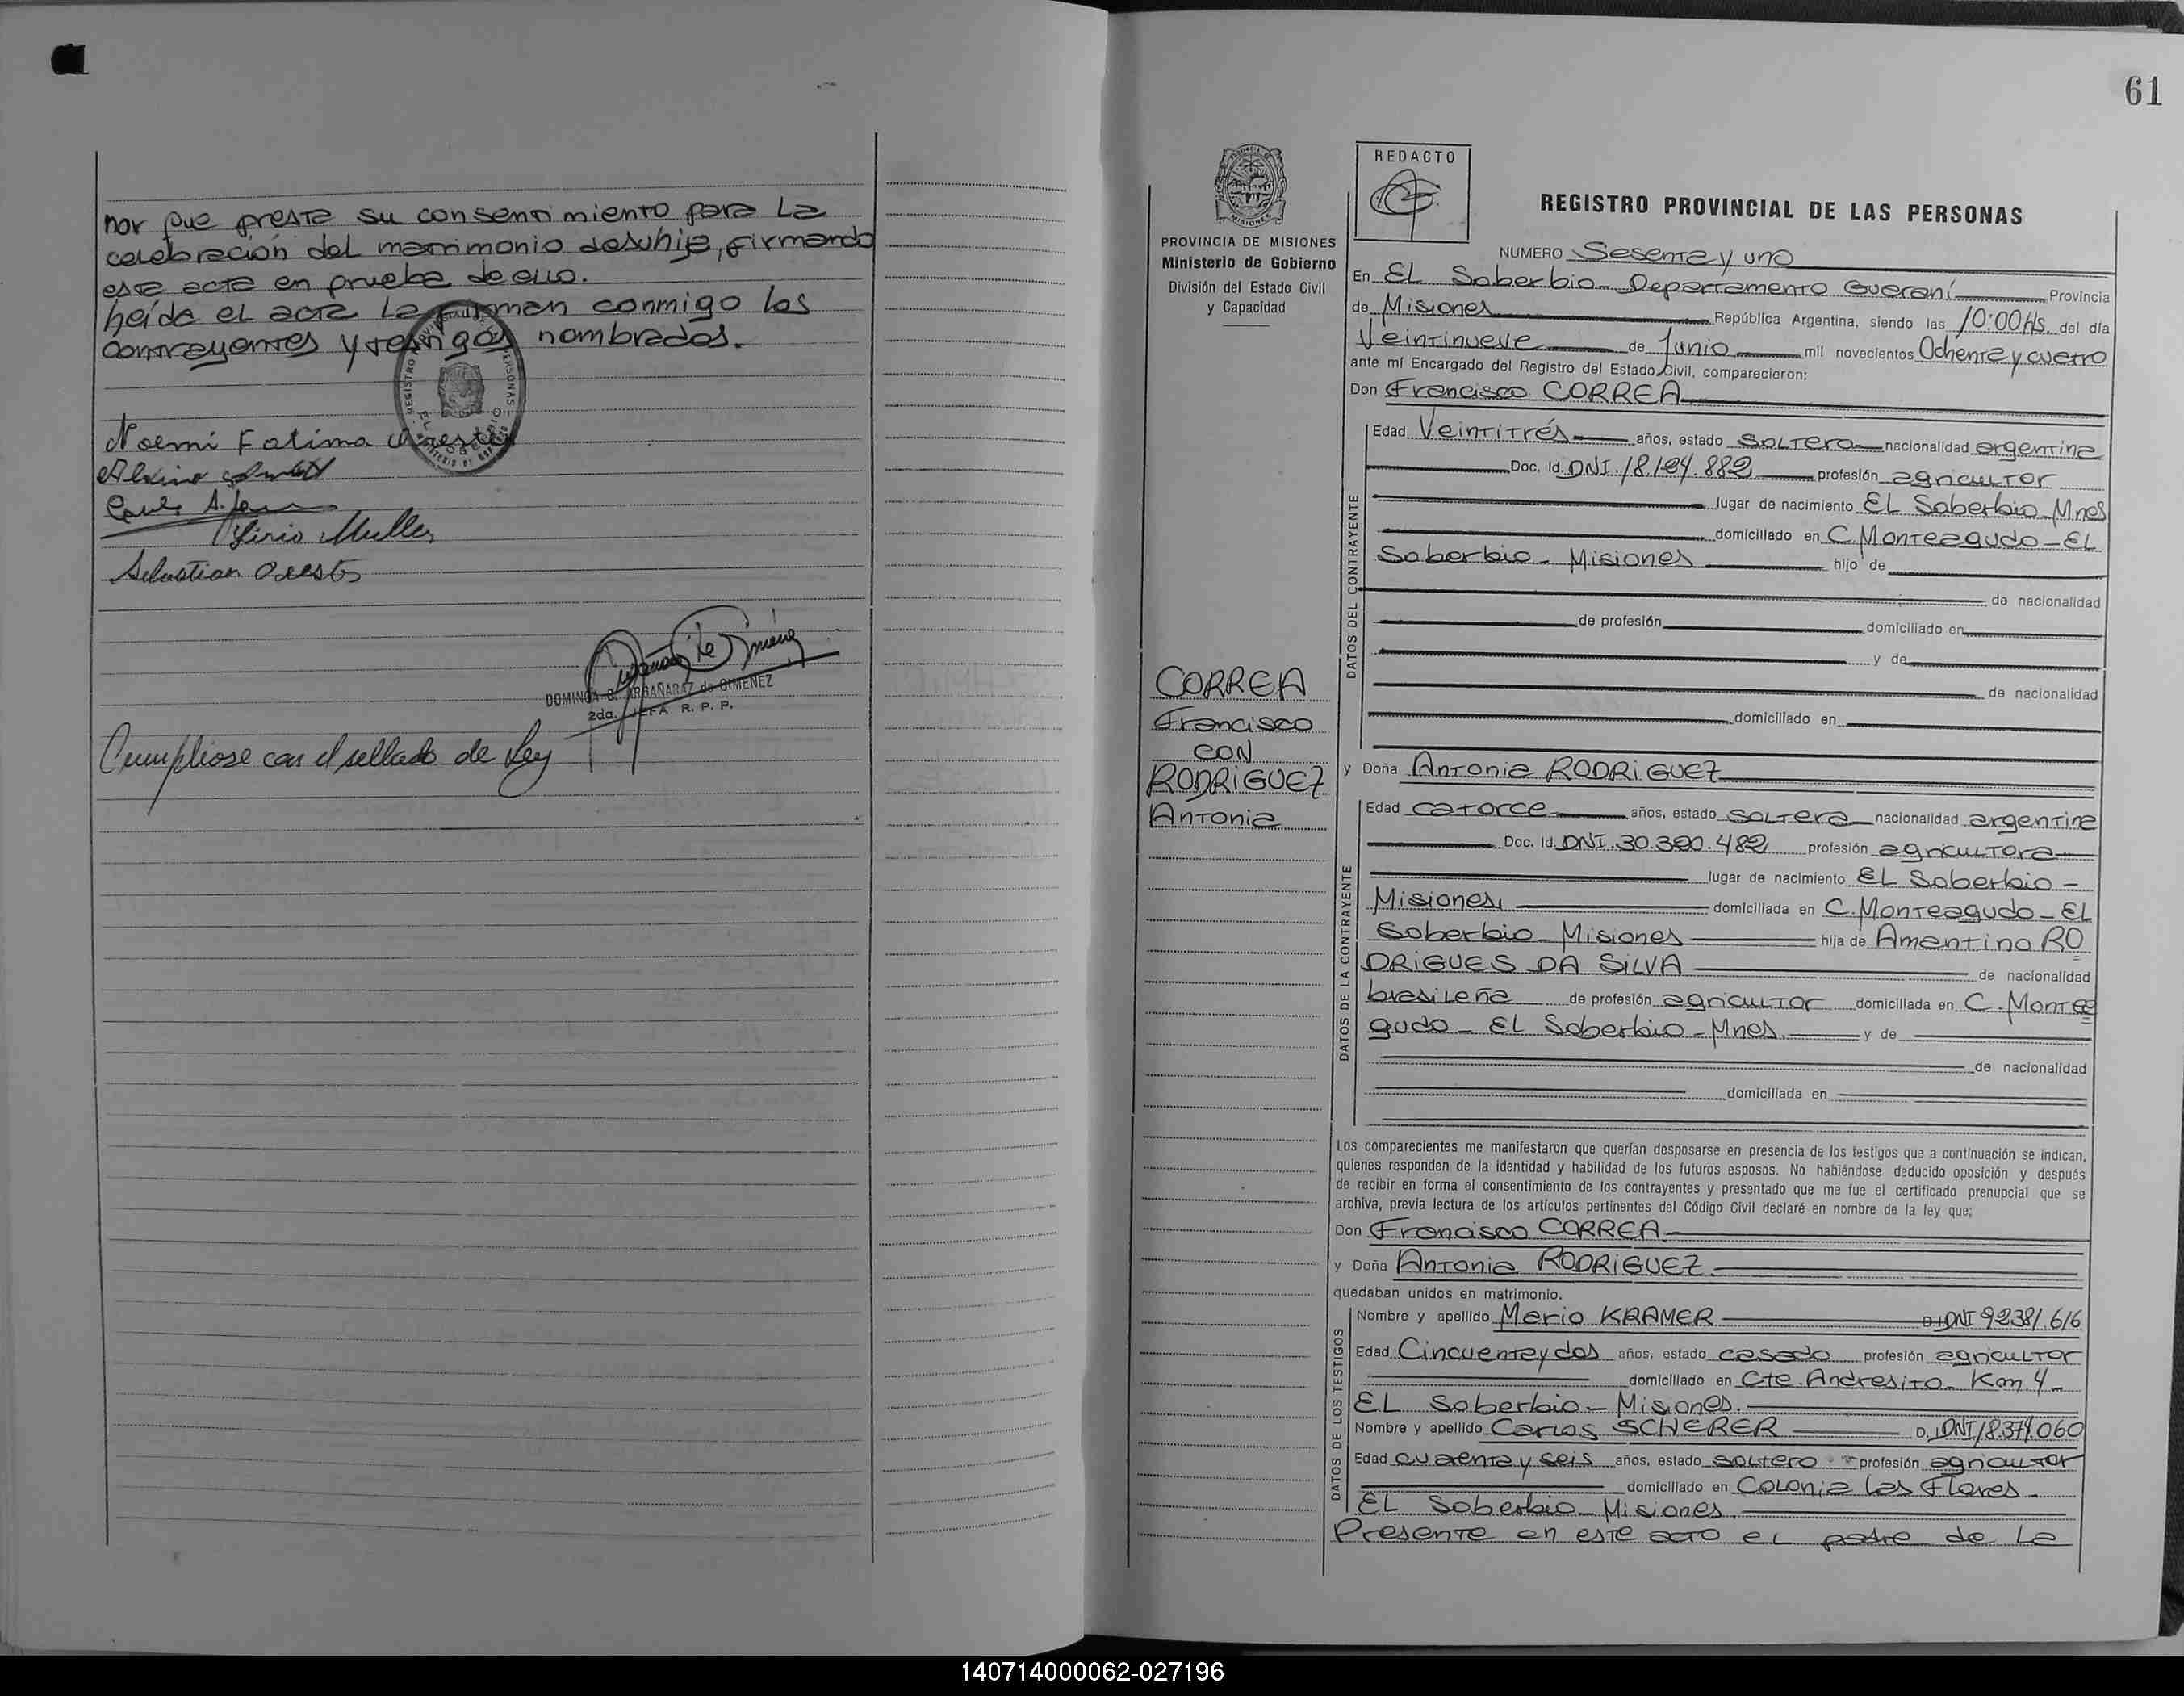 nor que preste su consentimiento para la
celebración del matrimonio de su hija, firmando
este acta en prueba de ello.
Leída el acta la firman conmigo los
contrayentes y testigos nombrados.
Noemi Fatima
Lirio Muller
Sebastian
DOMINGA G. ARGAÑARAZ de GIMENEZ
2da. JEFA R. P. P.
Cumpliose con el sellado de Ley
61
REDACTO
PROVINCIA DE MISIONES
Ministerio de Gobierno
División del Estado Civil
y Capacidad
REGISTRO PROVINCIAL DE LAS PERSONAS
NUMERO Sesenta y uno
En EL Soberbio - Departamento Guaraní Provincia
de Misiones República Argentina, siendo las 10:00 Hs. del día
Veintinueve de Junio mil novecientos Ochenta y cuatro
ante mí Encargado del Registro del Estado Civil, comparecieron:
Don Francisco CORREA
Edad Veintitrés años, estado soltero nacionalidad argentina
Doc. Id. DNI. 18.194.882 profesión agricultor
lugar de nacimiento EL Soberbio - Mnes
domiciliado en C. Monteagudo - EL
Soberbio - Misiones hijo de
de nacionalidad
de profesión domiciliado en
y de
de nacionalidad
domiciliado en
DATOS DEL CONTRAYENTE
CORREA
Francisco
CON
RODRIGUEZ
Antonia
y Doña Antonia RODRIGUEZ
Edad catorce años, estado soltera nacionalidad argentina
Doc. Id. DNI. 30.390.482 profesión agricultora
lugar de nacimiento EL Soberbio -
Misiones domiciliada en C. Monteagudo - EL
Soberbio - Misiones hija de Amantino RO
DRIGUES DA SILVA de nacionalidad
brasileña de profesión agricultor domiciliada en C. Montea
gudo - EL Soberbio - Mnes. y de
de nacionalidad
domiciliada en
DATOS DE LA CONTRAYENTE
Los comparecientes me manifestaron que querían desposarse en presencia de los testigos que a continuación se indican,
quienes responden de la identidad y habilidad de los futuros esposos. No habiéndose deducido oposición y después
de recibir en forma el consentimiento de los contrayentes y presentado que me fue el certificado prenupcial que se
archiva, previa lectura de los artículos pertinentes del Código Civil declaré en nombre de la ley que;
Don Francisco CORREA
y Doña Antonia RODRIGUEZ
quedaban unidos en matrimonio.
Nombre y apellido Mario KRAMER D.I. DNI 92381.616
Edad Cincuenta y dos años, estado casado profesión agricultor
domiciliado en Cte. Andresito - Km. 4 -
EL Soberbio - Misiones.
Nombre y apellido Carlos SCHERER D. I. DNI 18.374.060
Edad cuarenta y seis años, estado soltero profesión agricultor
domiciliado en Colonia Las Flores -
EL Soberbio - Misiones.
DATOS DE LOS TESTIGOS
Presente en este acto el padre de la
140714000062-027196